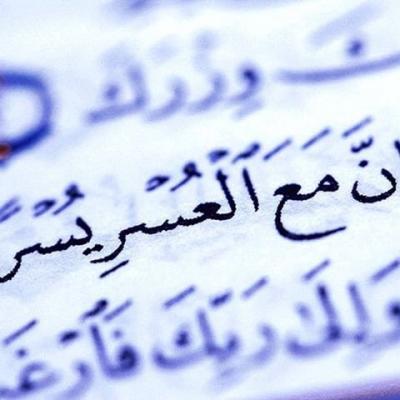 وِزْرَكَ
نَّ مَعَ ٱلْعُسْرِ يُسْرً
رَبِّكَ فَٱرْغَب